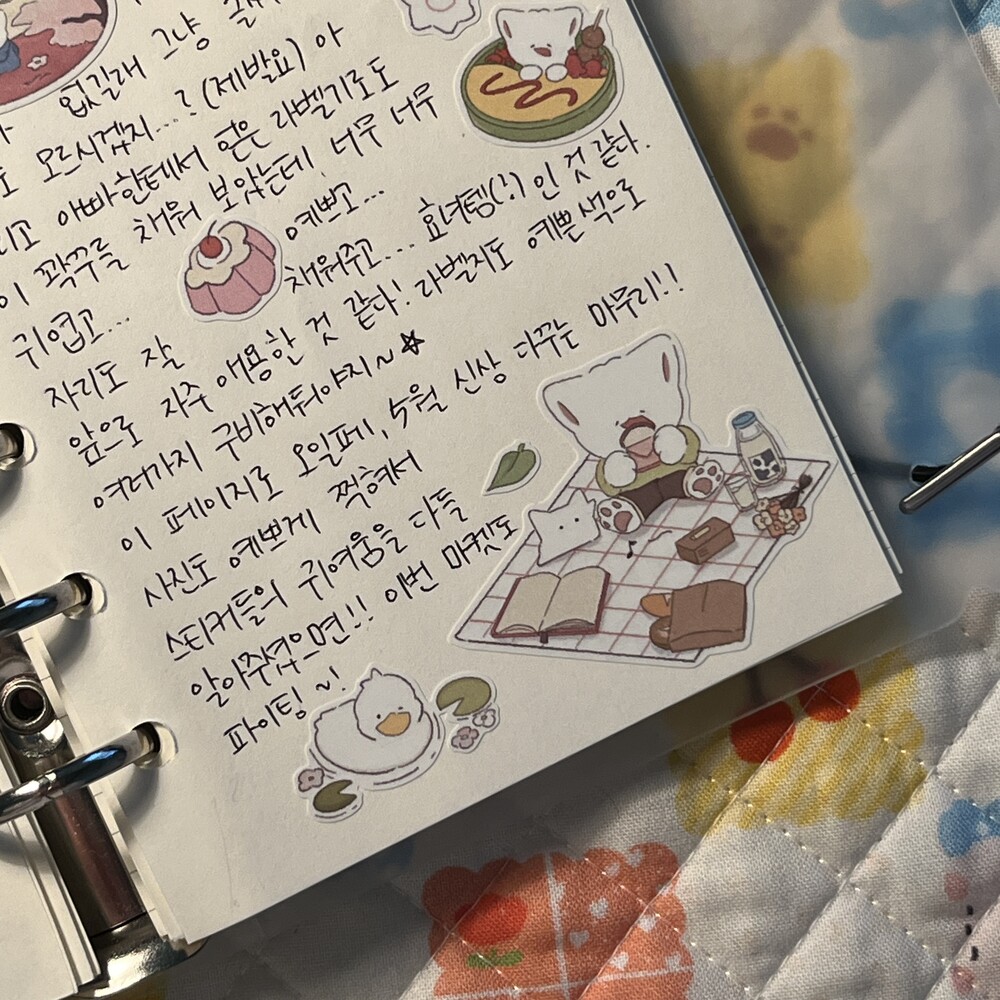 없길래 그냥
모르시겠지....? (제발요) 아
아빠한테서 얻은 라벨기로도
채워 보았는데 너무 너무
귀엽고... 예쁘고...
자리도 잘 채워주고... 효녀템(?)인 것 같다.
앞으로 자주 애용한 것 같다! 라벨지도 예쁜 색으로
여러가지 구비해둬야지~ ☆
이 페이지로 오일페, 5월 신상 다꾸는 마무리!!
사진도 예쁘게 찍혀서
스티커들의 귀여움을 다들
이번 마켓도
파이팅 ~!